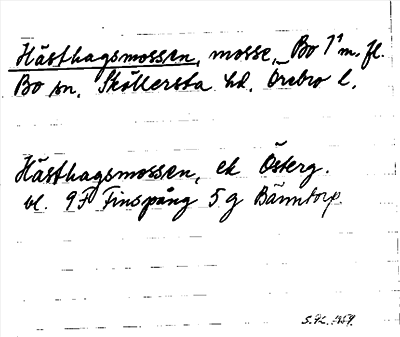 Hästhagsmossen, mosse, Bo 7¹ m. fl.
Bo sn. Sköllersta hd. Örebro l.
Hästhagsmossen, ek Österg.
bl. 9F Finspång 5g Bänntorp.